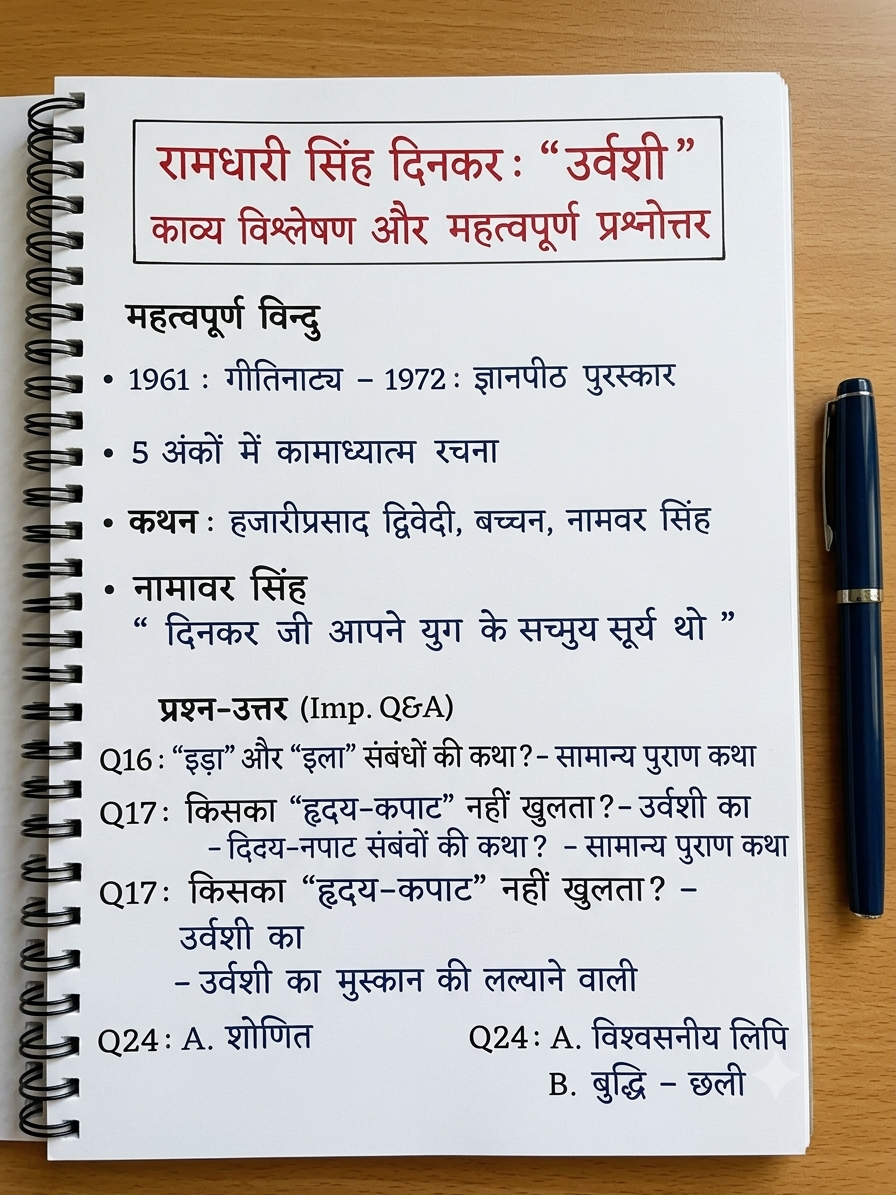 रामधारी सिंह दिनकर: “उर्वशी”
काव्य विश्लेषण और महत्वपूर्ण प्रश्नोत्तर
महत्वपूर्ण विन्दु
• 1961 : गीतिनाट्य – 1972 : ज्ञानपीठ पुरस्कार
• 5 अंकों में कामाध्यात्म रचना
• कथन : हजारीप्रसाद द्विवेदी, बच्चन, नामवर सिंह
• नामावर सिंह
“ दिनकर जी आपने युग के सच्मुय सूर्य थो ”
प्रश्न-उत्तर (Imp. Q&A)
Q16 : “इड़ा” और “इला” संबंधों की कथा? – सामान्य पुराण कथा
Q17: किसका “हृदय-कपाट” नहीं खुलता? – उर्वशी का
– दिदय-नपाट संबंवों की कथा? – सामान्य पुराण कथा
Q17: किसका “हृदय-कपाट” नहीं खुलता? –
उर्वशी का
– उर्वशी का मुस्कान की लल्याने वाली
Q24 : A. शोणित Q24 : A. विश्वसनीय लिपि
B. बुद्धि – छली